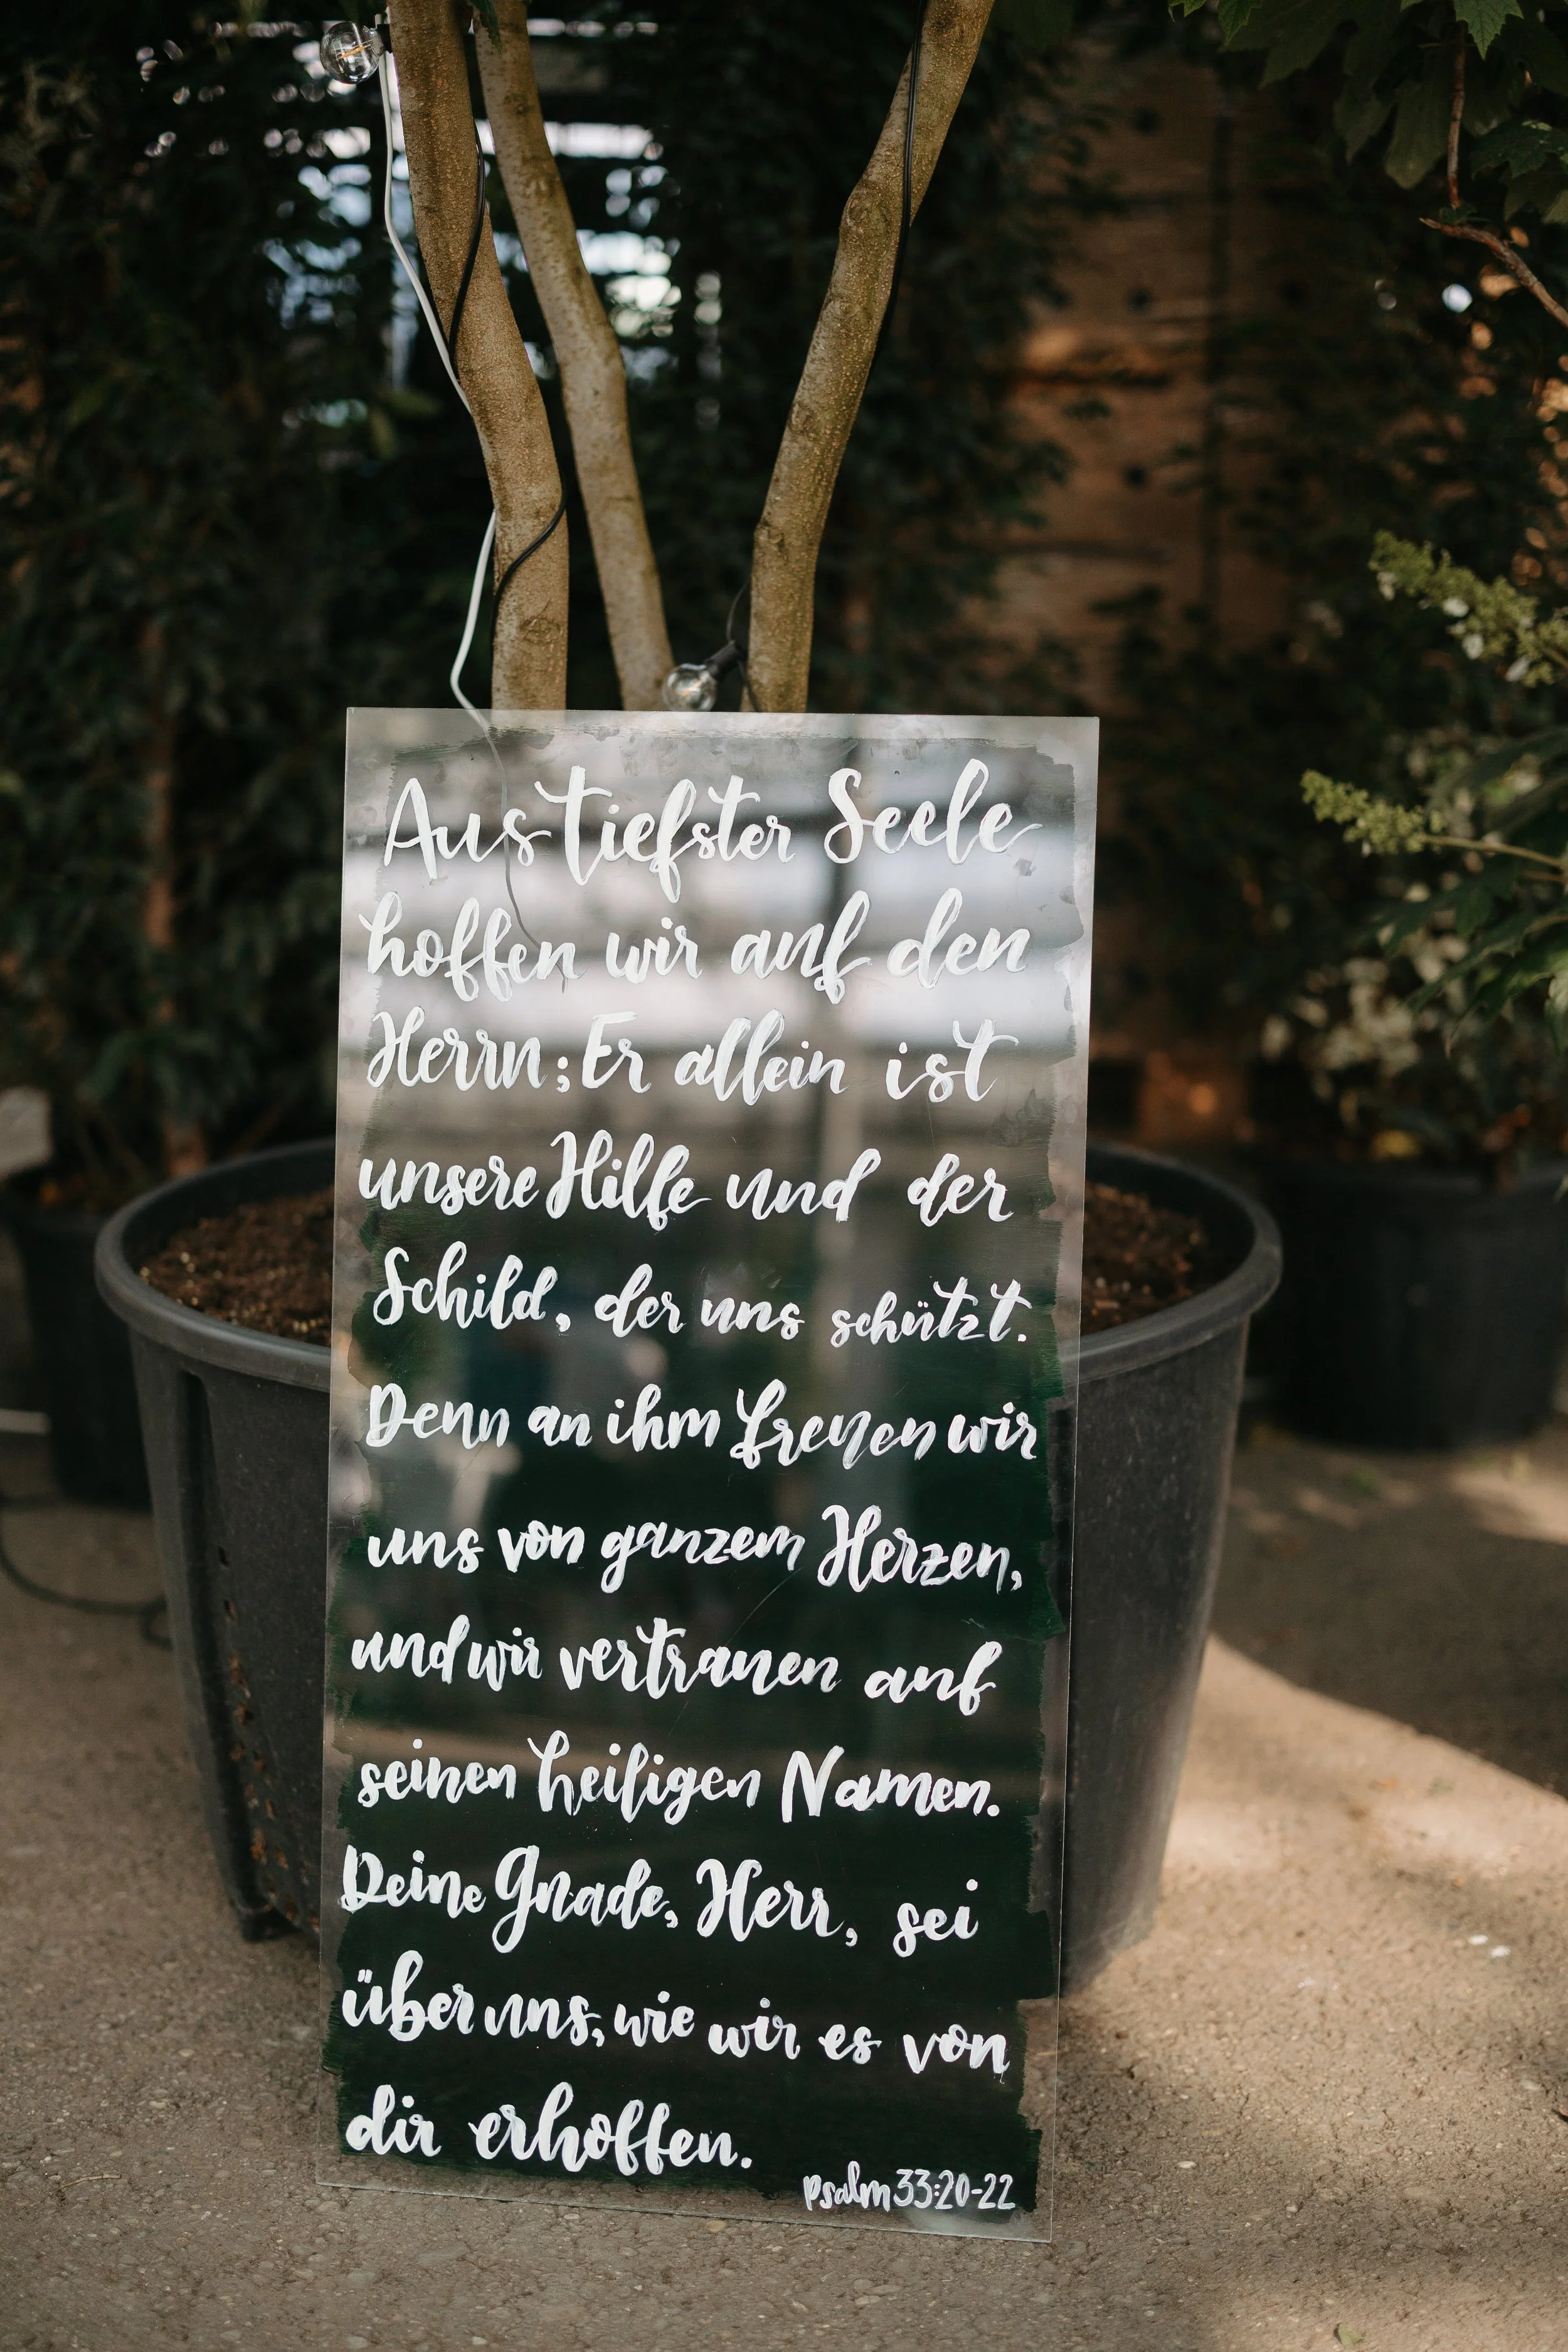 Aus tiefster Seele
hoffen wir auf den
Herrn; Er allein ist
unsere Hilfe und der
Schild, der uns schützt.
Denn an ihm freuen wir
uns von ganzem Herzen,
und wir vertrauen auf
seinen heiligen Namen.
Deine Gnade, Herr, sei
über uns, wie wir es von
dir erhoffen.
Psalm 33:20-22